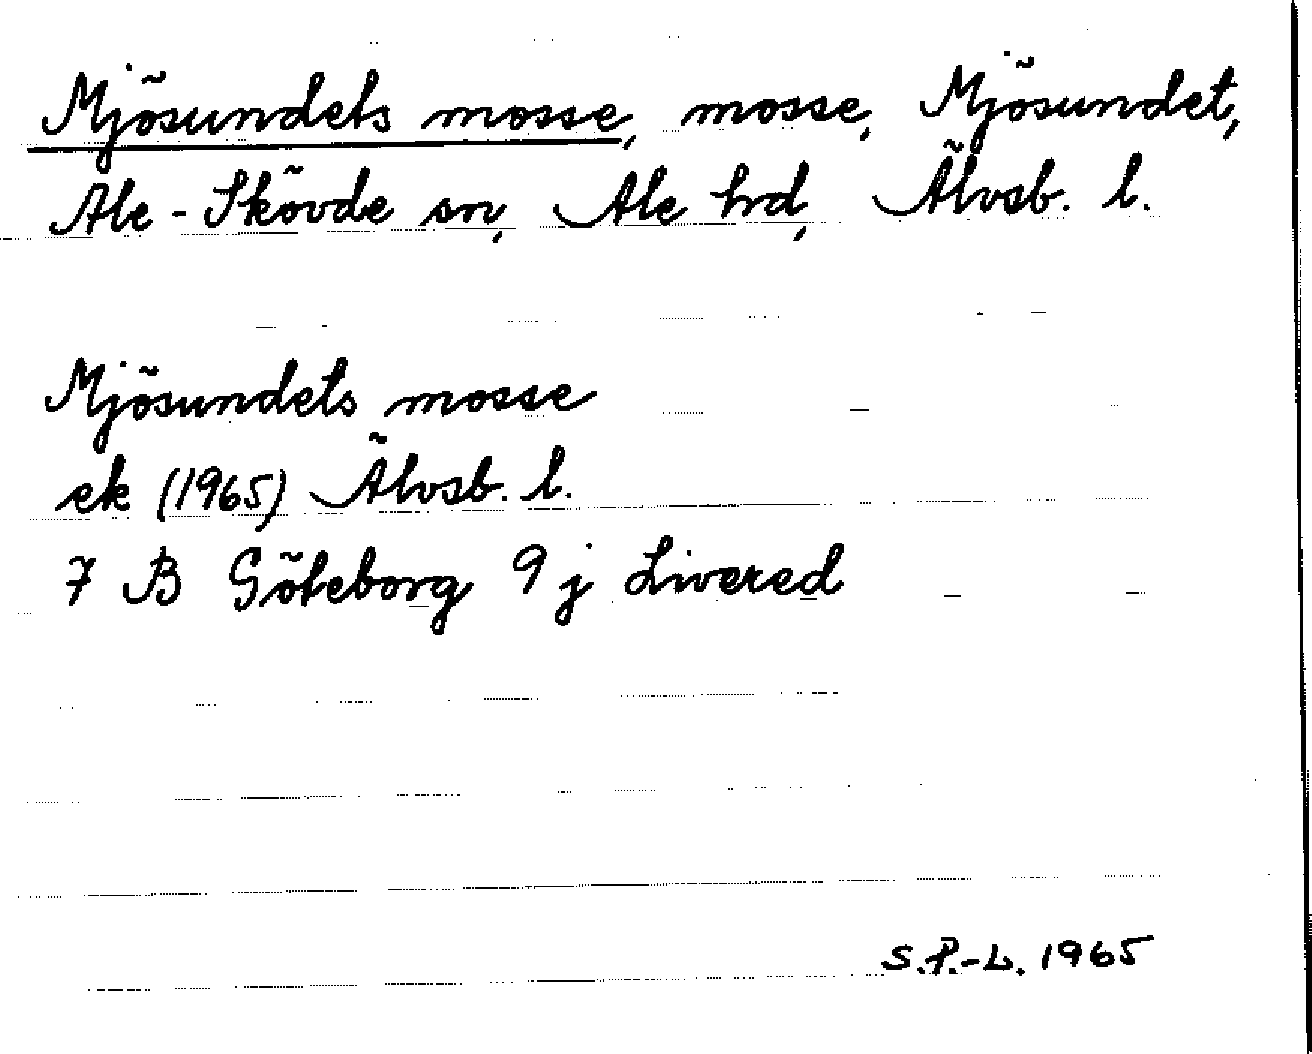 Mjösundets mosse, mosse, Mjösundet,
Ale-Skövde sn, Ale hrd, Älvsb. l.
Mjösundets mosse
ek (1965) Älvsb. l.
7 B Göteborg 9 j Livered
S.P.-L. 1965